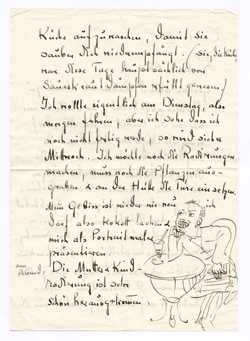 Küche aufzuwaschen, damit sie
sauber Dich wiederempfängt. (sie, die Küche
war diese Tage hauptsächlich von
und Dampfen erfüllt gewesen)
Ich wollte eigentlich am Dienstag, also
morgen fahren, aber ich sehe dass ich
noch nicht fertig werde, so wird sicher
Mittwoch. Ich möchte noch die Radierungen
machen, muss noch die Pflanzen aus-
graben & an der Hütte die Türe einsetzen.
Mein Gebiss ist wieder wie neu, ich
darf also kokett lachen &
mich als Portraitmaler
präsentieren.
am Abend,
Die Mutter & Kind
radierung ist sehr
schön herausgekommen.